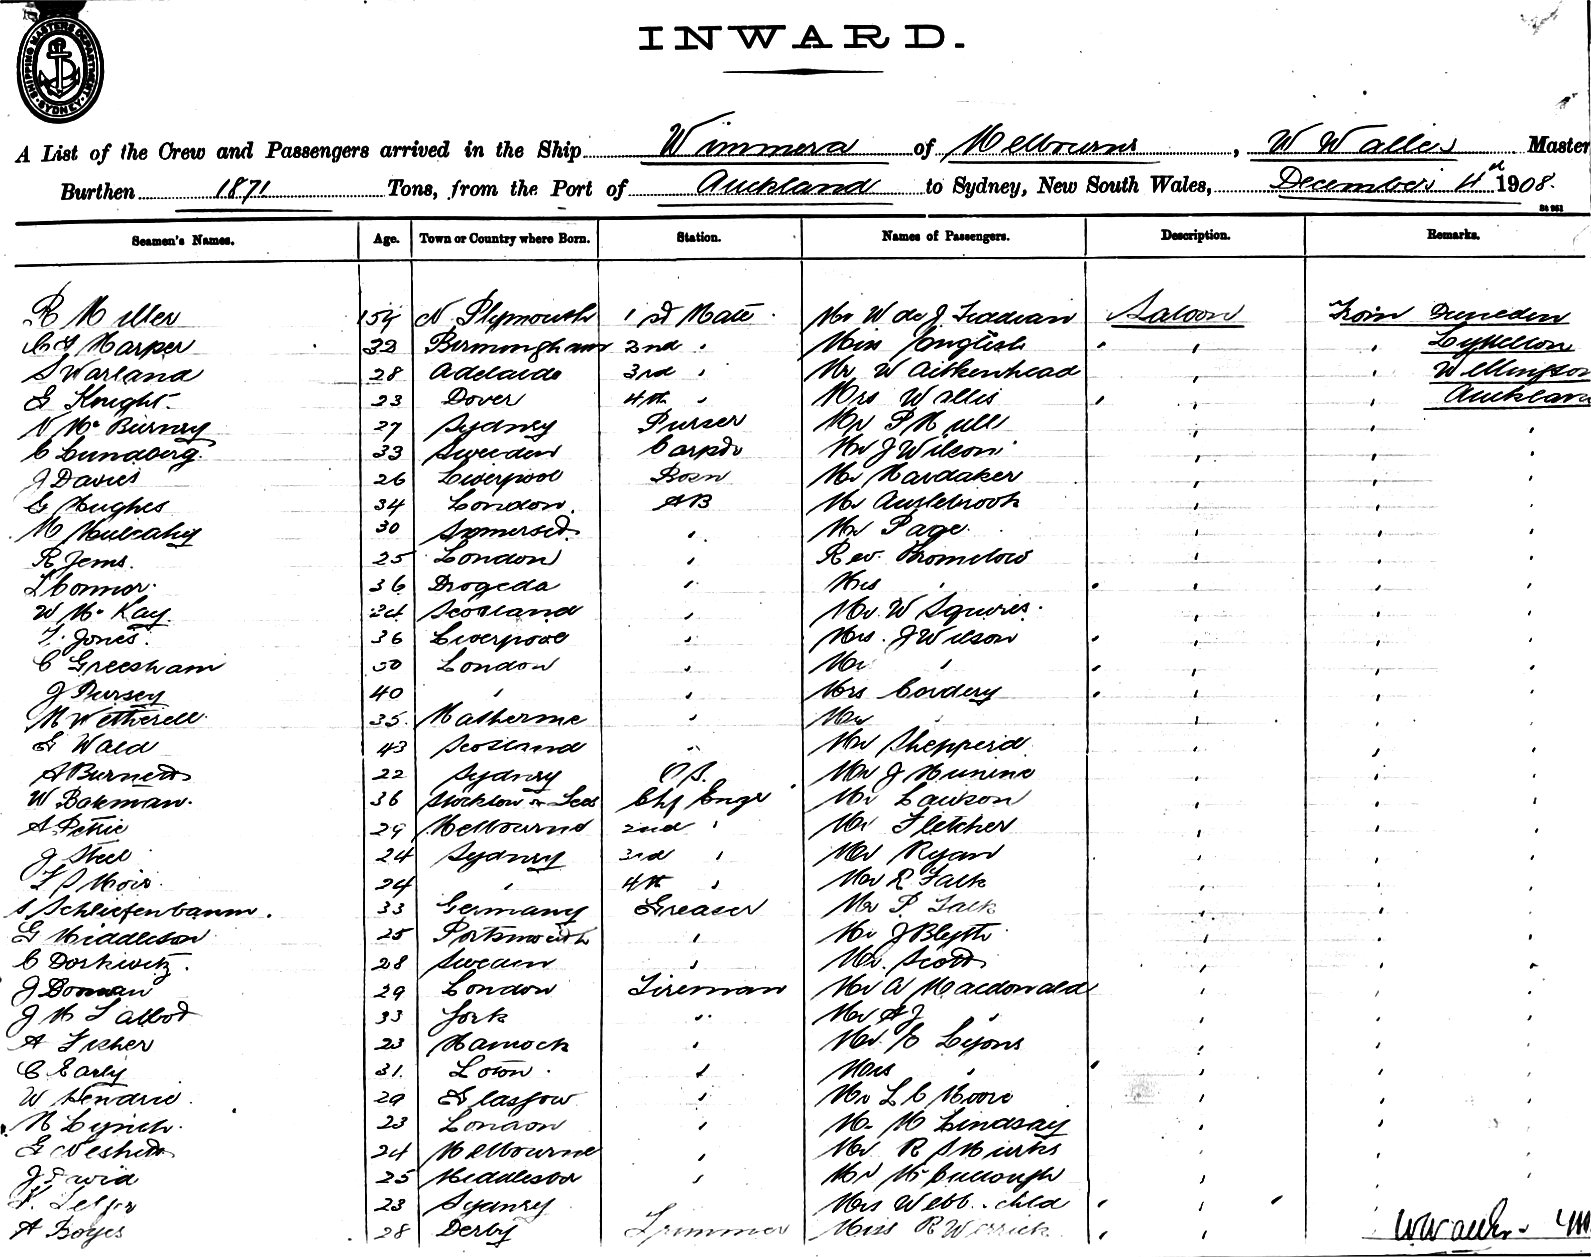 SHIPPING MASTERS DEPARTMENT SYDNEY
INWARD.
A List of the Crew and Passengers arrived in the Ship Wimmera of Melbourne, W Wallis Master
Burthen 1871 Tons, from the Port of Auckland to Sydney, New South Wales, December 4th 1908.
Seamen's Names. Age. Town or Country where Born. Station. Names of Passengers. Description. Remarks.
R Miller N Plymouth 1st Mate Mr W de J Saloon From Dunedin
Harper 33 Birmingham 2nd " Miss English " " " Lyttelton
S Warland 28 Adelaide 3rd " Mr W Aitkenhead " " Wellington
G Knight 23 Dover 4th " Mrs Wallis " " " Auckland
N McBurney 27 Sydney Purser Mr P Hull " " "
C Lundberg 33 Sweden Carptr Mr J Wilson " " "
J Davies 26 Liverpool Bosn Mr Hardaker " " "
G Hughes 34 London AB Mr " " "
M Mulcahy 30 Somerset " Mr Page " " "
R Jems. 25 London " Rev. " " "
Connor 36 Drogeda " Mrs " " " " "
W McKay. 24 Scotland " Mr W Squires " " "
T. Jones. 36 Liverpool " Mrs. J Wilson " " " "
C Greesham 50 London " Mr " " " " "
J Pursey 40 " " Mrs Cordery " " " "
M Wetherell 35 " Mr " " " "
G Wald 43 Scotland " Mr Shepperd " " "
A Burnett 22 Sydney OS. Mr J " " "
W Bateman. 36 Stockton on Tees Chf Engr Mr Lawson " " "
A Petrie 29 Melbourne 2nd " Mr Fletcher " " "
J Steel 24 Sydney 3rd " Mr Ryan " " "
Moir 24 " 4th " Mr R Falk " " "
S Schliefenbaum. 33 Germany Greaser Mr P. Falk " " "
G Middleton 25 Portsmouth " Mr J Blyth " " "
C 28 Sweden " Mr. Scott " " "
J 29 London Fireman Mr A Macdonald " " "
J M Talbot 33 York " Mr A J " " " "
A Fisher 23 " Mr. E Lyons " " "
C Early 31 " Mrs " " " " "
W Hendrie 29 Glasgow " Mr L C Moore " " "
M Lynch 23 London " Mr M Lindsay " " "
G Nesbitt 24 Melbourne " Mr R S " " "
J 25 Middlesbor " Mr McCullough " " "
Telfer 23 Sydney Mrs Webb & child " " " "
A Boyes 28 Derby Trimmer Miss R " "